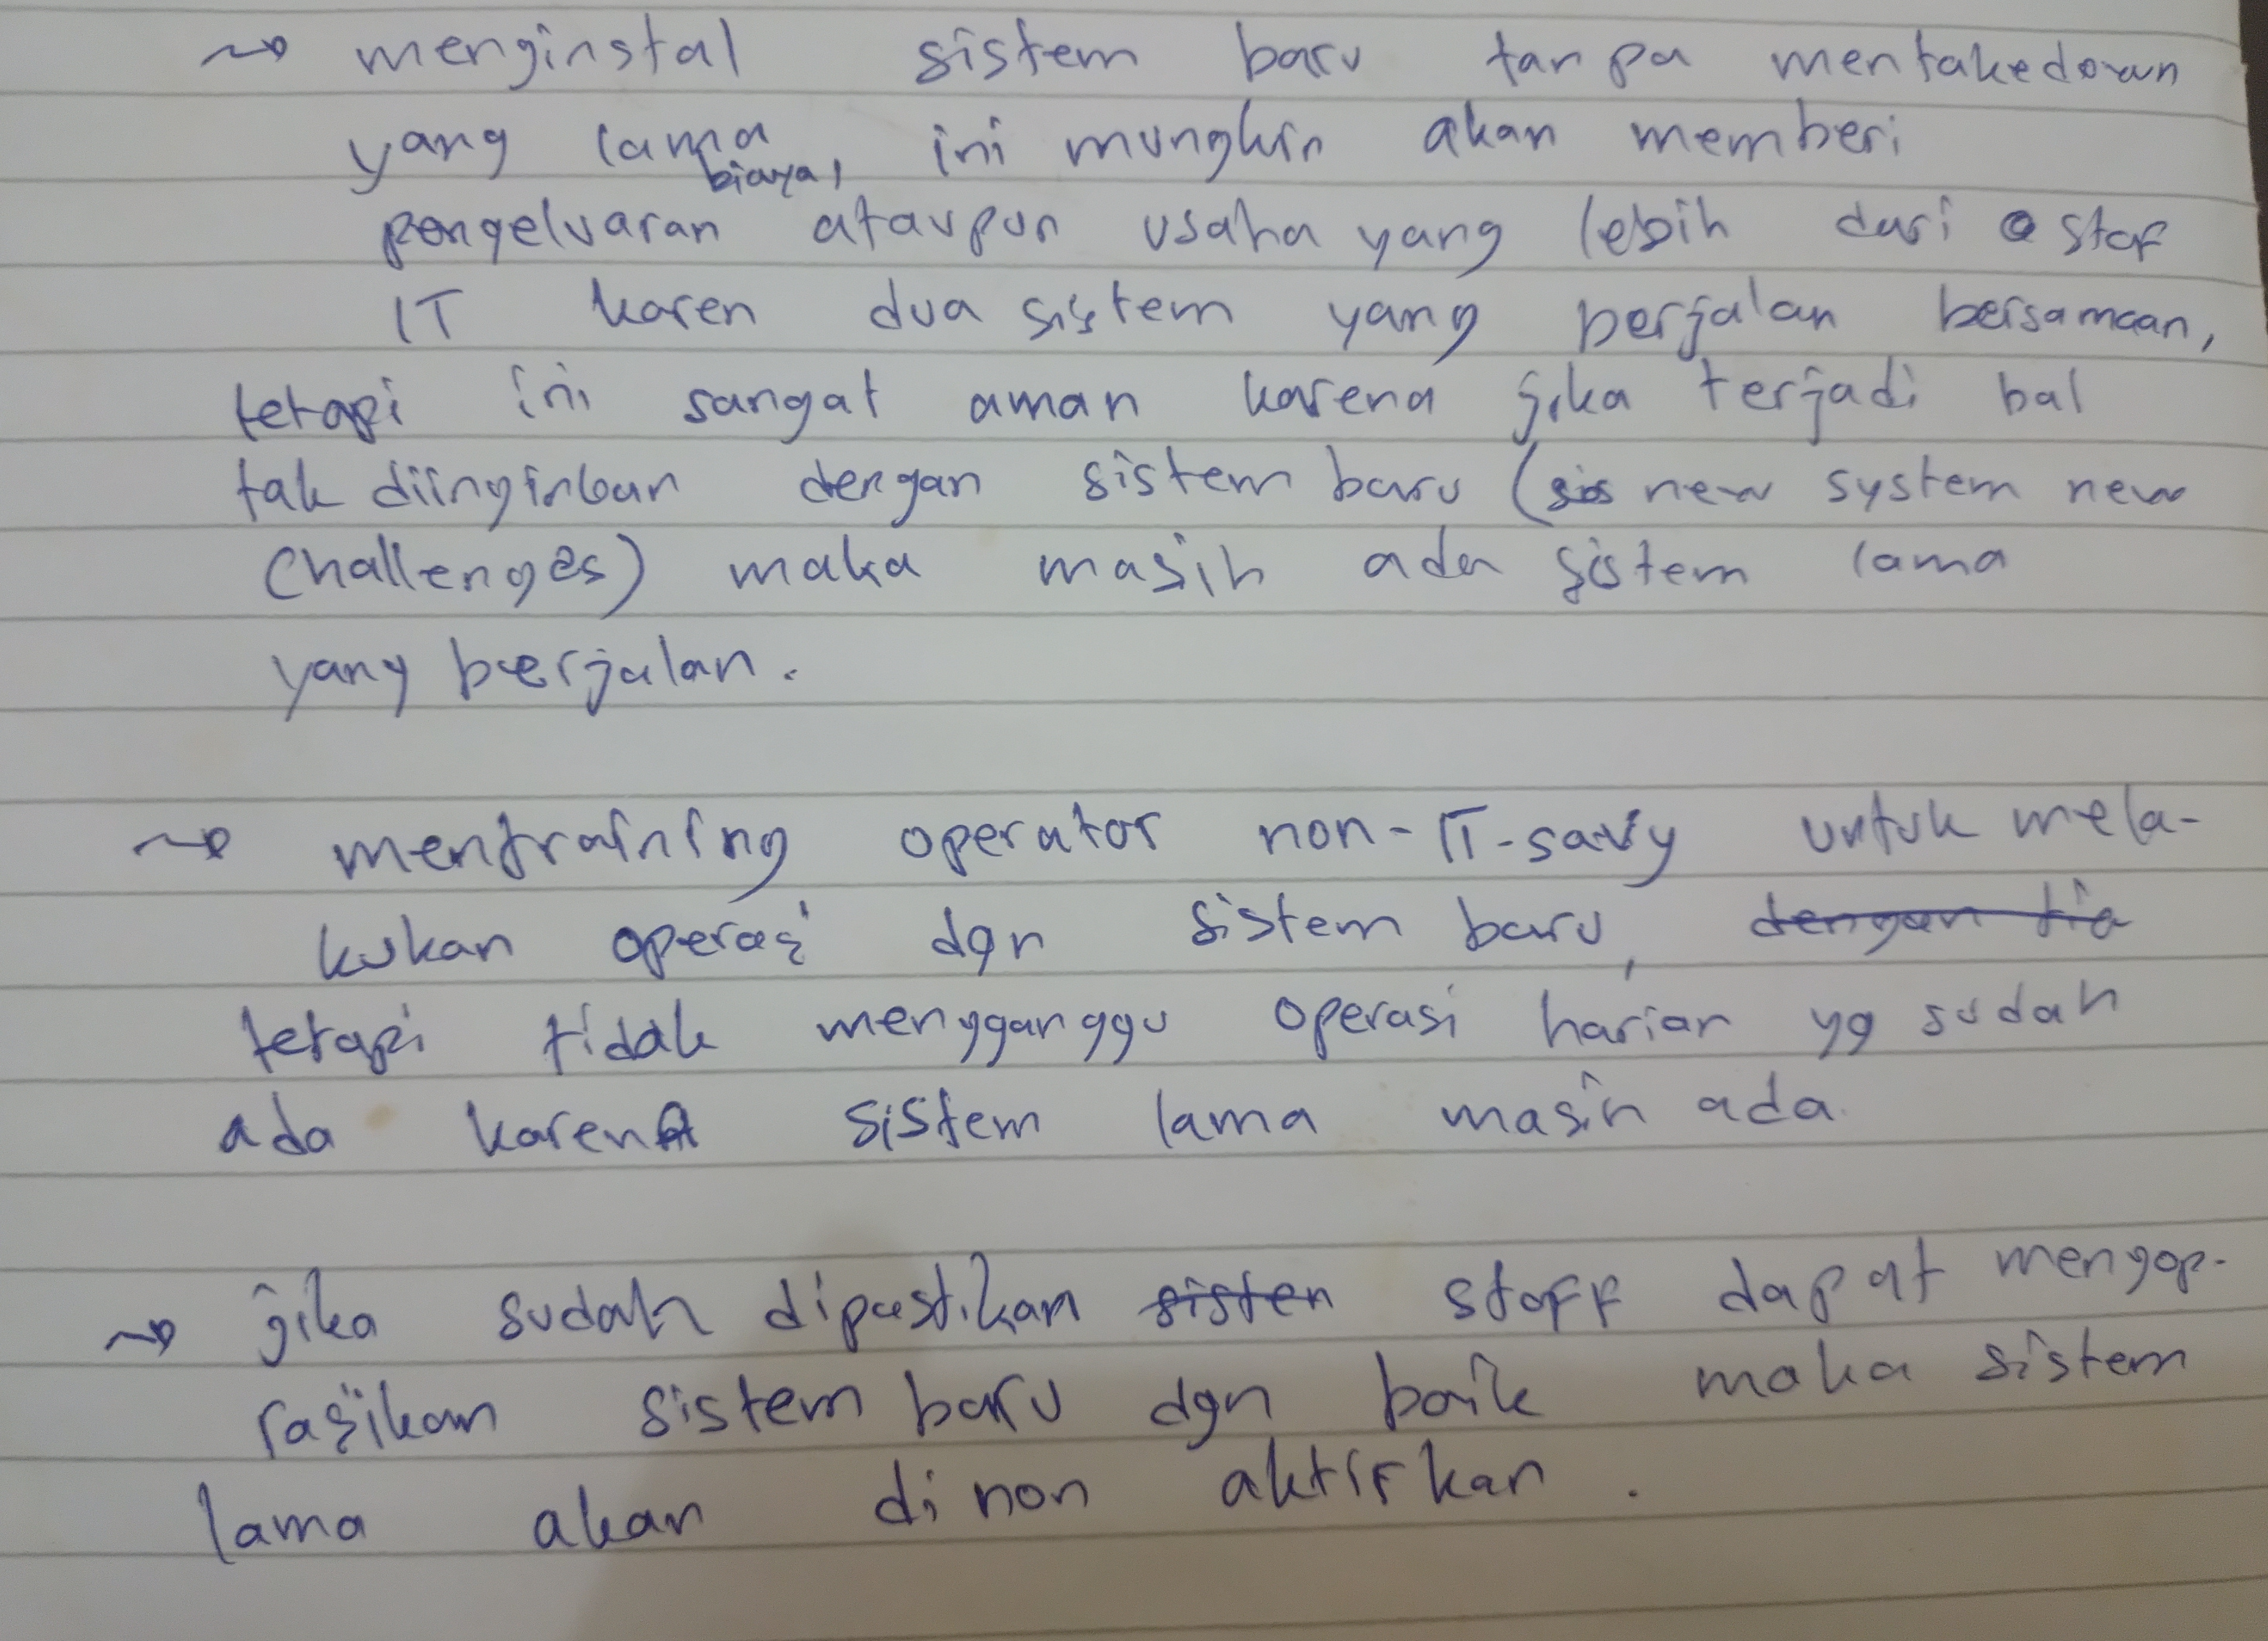 ~> menginstal sistem baru tanpa mentakedown
yang lama, ini mungkin akan memberi
pengeluaran biaya, ataupun usaha yang lebih dari staf
IT karen dua sistem yang berjalan bersamaan,
tetapi ini sangat aman karena jika terjadi hal
tak diinginkan dengan sistem baru (new system new
challenges) maka masih ada sistem lama
yang berjalan.
~> mentraining operator non-IT-savy untuk mela-
kukan operasi dgn sistem baru, dengan tia
tetapi tidak mengganggu operasi harian yg sudah
ada karena sistem lama masih ada.
~> jika sudah dipastikan sisten staff dapat mengop-
rasikan sistem baru dgn baik maka sistem
lama akan di non aktifkan.